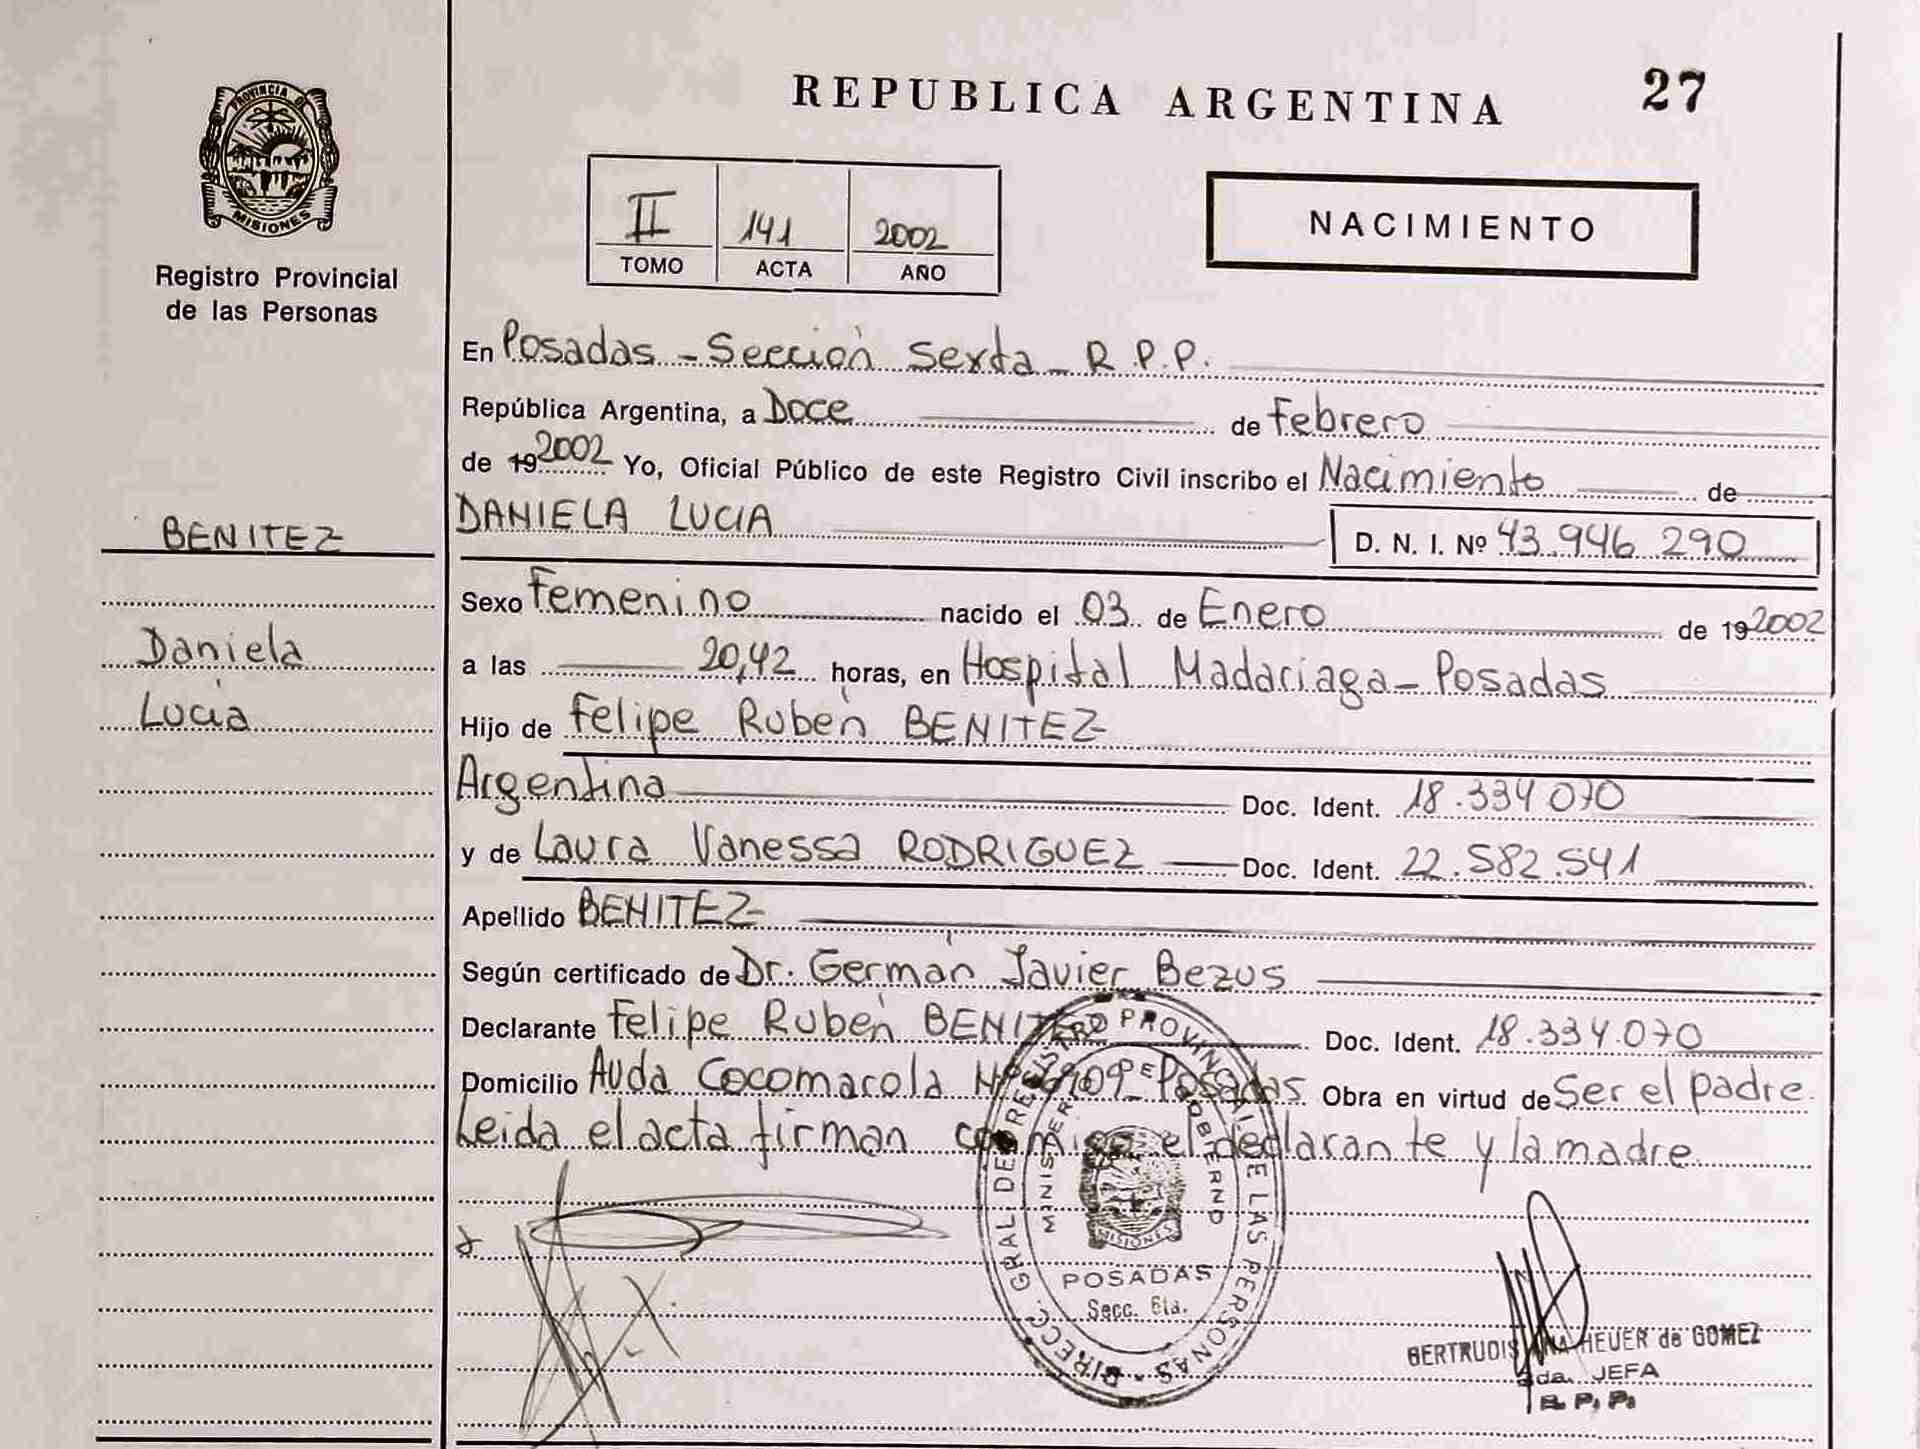 PROVINCIA DE
MISIONES
Registro Provincial
de las Personas
BENITEZ
Daniela
Lucía
REPUBLICA ARGENTINA 27
II 141 2002
TOMO ACTA AÑO
NACIMIENTO
En Posadas - Sección Sexta - R.P.P.
República Argentina, a Doce de Febrero
de 19 2002 Yo, Oficial Público de este Registro Civil inscribo el Nacimiento de
DANIELA LUCIA D. N. I. Nº 43.946 290
Sexo Femenino nacido el 03 de Enero de 19 2002
a las 20,42 horas, en Hospital Madariaga - Posadas
Hijo de Felipe Rubén BENITEZ
Argentina Doc. Ident. 18.334 070
y de Laura Vanessa RODRIGUEZ Doc. Ident. 22.582.541
Apellido BENITEZ
Según certificado de Dr. Germán Javier Bezus
Declarante Felipe Rubén BENITEZ Doc. Ident. 18.334.070
Domicilio Avda Cocomarola Nº Posadas Obra en virtud de Ser el padre.
Leida el acta firman conmigo el declarante y la madre
DIRECC. GRAL DEL REGISTRO PROVINCIAL DE LAS PERSONAS
MINISTERIO DE GOBIERNO
MISIONES
POSADAS
Secc. 6ta.
GERTRUDIS ANA HEUER de GOMEZ
2da. JEFA
R. P. P.